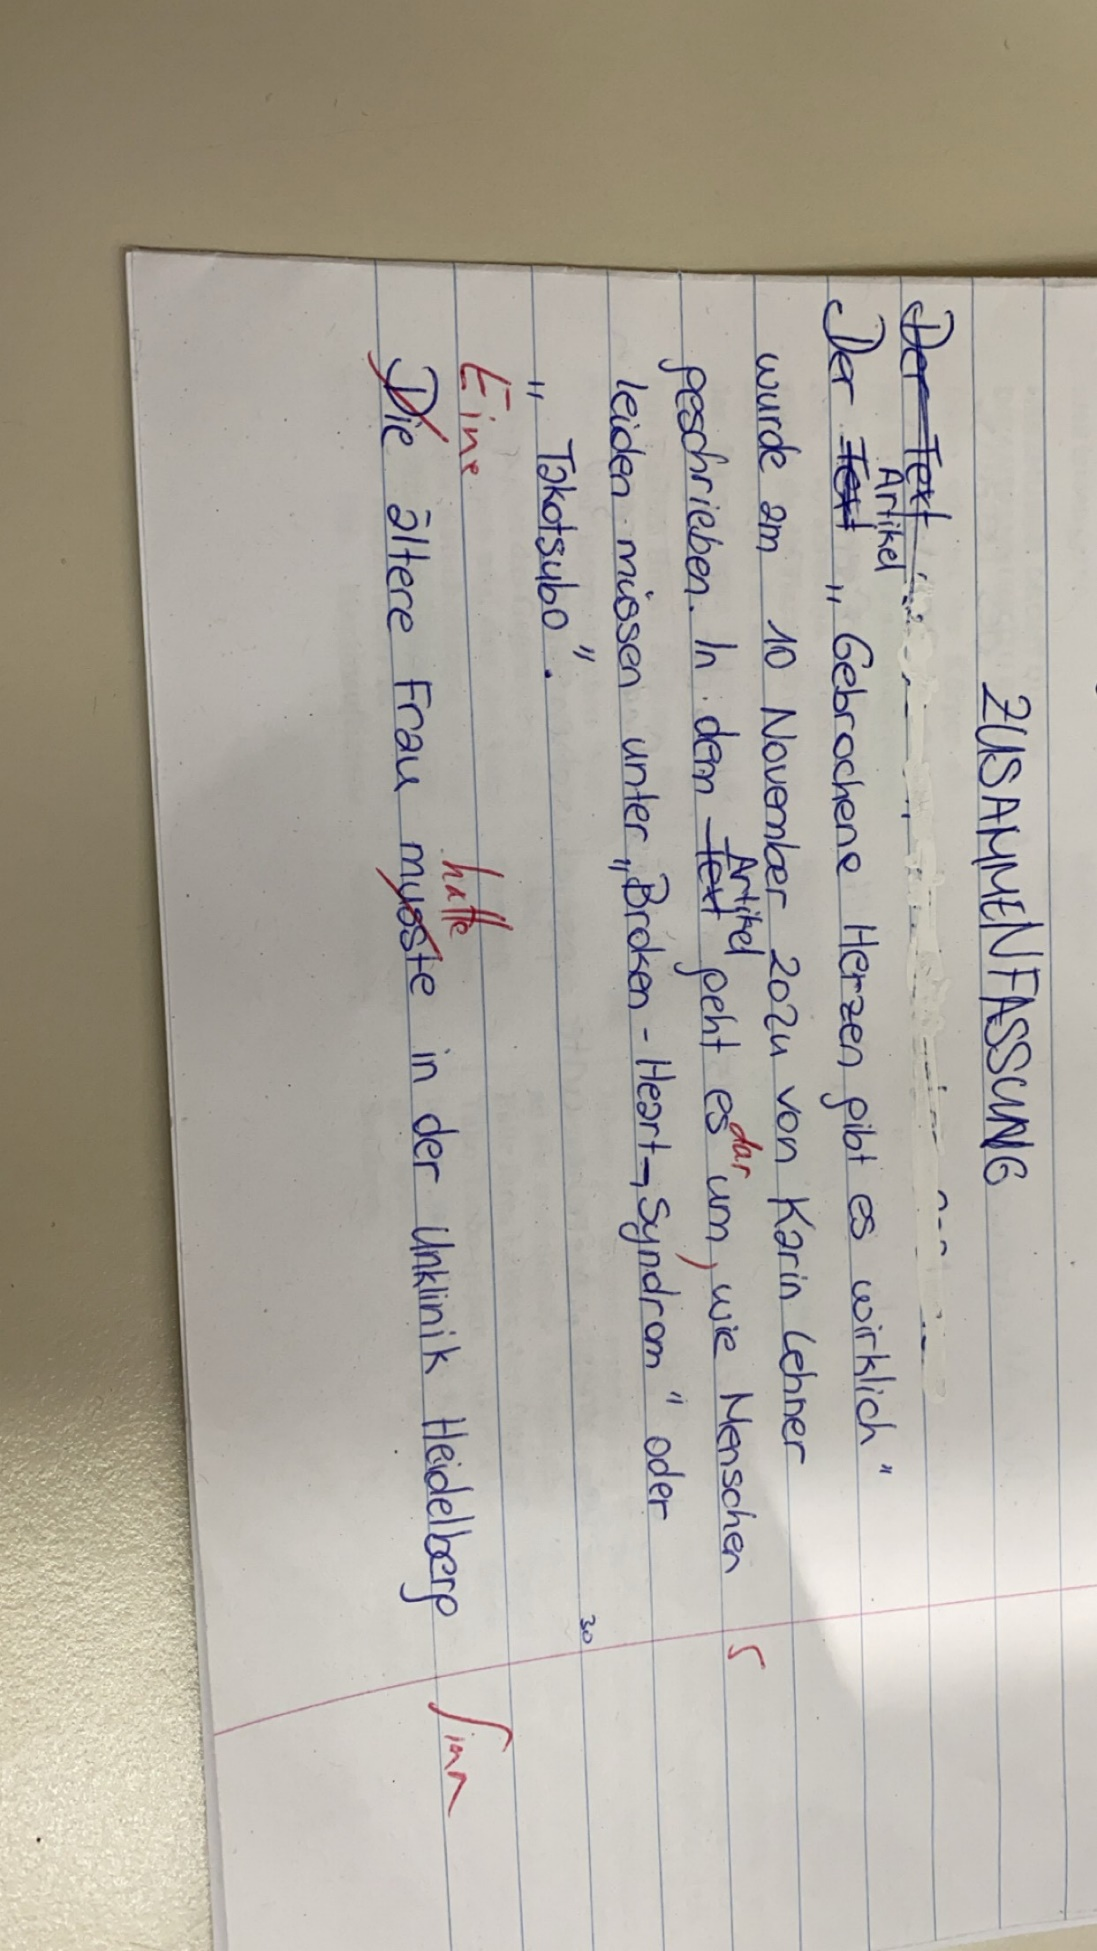 ZUSAMMENFASSUNG
Der Text
Artikel
Der Text „Gebrochene Herzen gibt es wirklich"
wurde am 10 November 2024 von Karin Lehner
geschrieben. In dem Text Artikel geht es darum, wie Menschen s
leiden müssen unter „Broken-Heart-Syndrom" oder
„Takotsubo". 30
Eine hatte
Die ältere Frau musste in der Unklinik Heidelberg Sinn